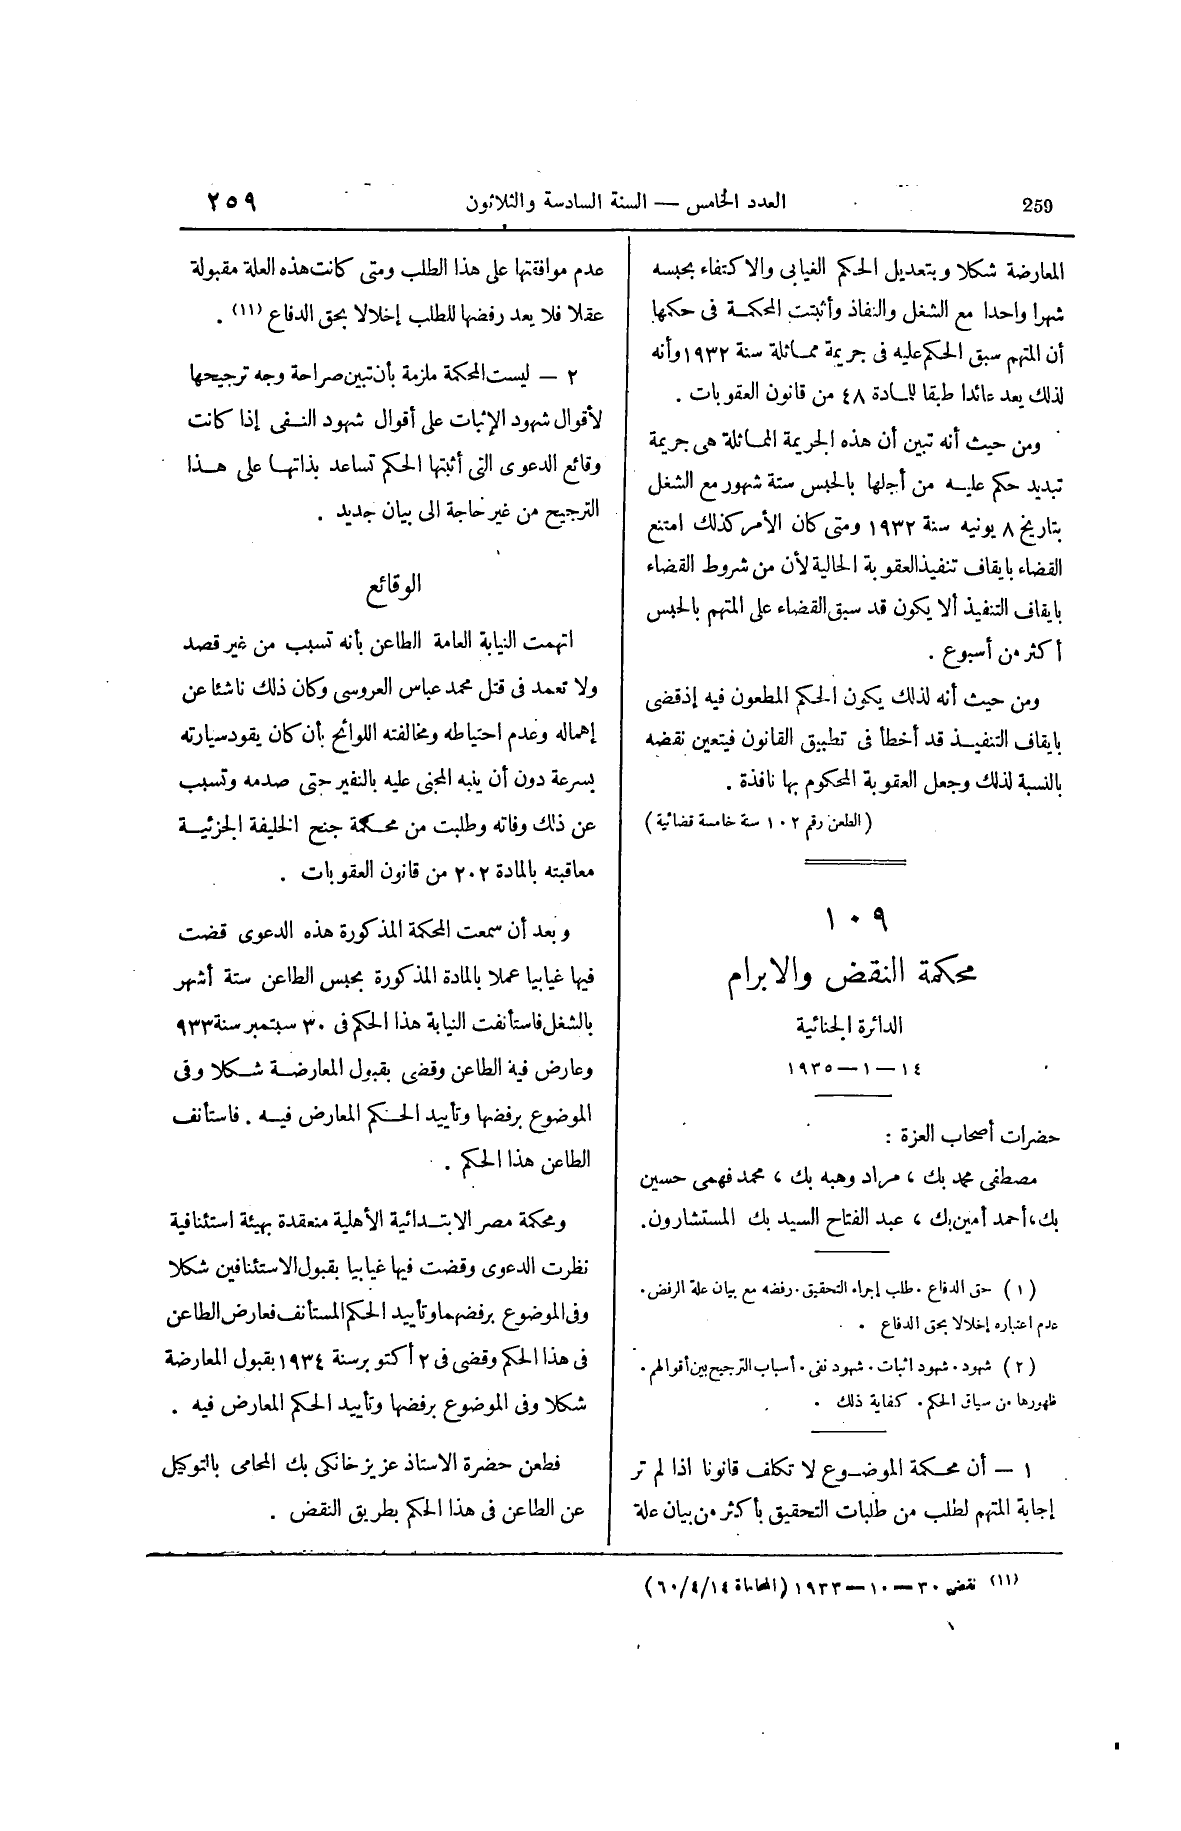 259
العدد الخامس — السنة السادسة والثلاثون
٢٥٩
المعارضة شكلا وبتعديل الحكم الغيابى والاكتفاء بحبسه
شهرا واحدا مع الشغل والنفاذ وأثبتت المحكمة فى حكمها
أن المتهم سبق الحكم عليه فى جريمة مماثلة سنة ١٩٣٢ وأنه
لذلك يعد عائدا طبقا للمادة ٤٨ من قانون العقوبات .
ومن حيث أنه تبين أن هذه الجريمة المماثلة هى جريمة
تبديد حكم عليه من أجلها بالحبس ستة شهور مع الشغل
بتاريخ ٨ يونيه سنة ١٩٣٢ ومتى كان الأمر كذلك امتنع
القضاء بايقاف تنفيذ العقوبة الحالية لأن من شروط القضاء
بايقاف التنفيذ ألا يكون قد سبق القضاء على المتهم بالحبس
أكثر من أسبوع .
ومن حيث أنه لذلك يكون الحكم المطعون فيه إذ قضى
بايقاف التنفيذ قد أخطأ فى تطبيق القانون فيتعين نقضه
بالنسبة لذلك وجعل العقوبة المحكوم بها نافذة .
( الطعن رقم ١٠٢ سنة خامسة قضائية )
١٠٩
محكمة النقض والابرام
الدائرة الجنائية
١٤ — ١ — ١٩٣٥
حضرات أصحاب العزة :
مصطفى محمد بك ، مراد وهبه بك ، محمد فهمى حسين
بك ، أحمد أمين بك ، عبد الفتاح السيد بك المستشارون.
( ١ ) حق الدفاع . طلب إجراء التحقيق . رفضه مع بيان علة الرفض .
عدم اعتباره إخلالا بحق الدفاع .
( ٢ ) شهود . شهود اثبات . شهود نفى . أسباب الترجيح بين أقوالهم .
ظهورها من سياق الحكم . كفاية ذلك .
١ — أن محكمة الموضوع لا تكلف قانونا اذا لم تر
إجابة المتهم لطلب من طلبات التحقيق بأكثر من بيان علة
عدم موافقتها على هذا الطلب ومتى كانت هذه العلة مقبولة
عقلا فلا يعد رفضها للطلب إخلالا بحق الدفاع (١١) .
٢ — ليست المحكمة ملزمة بأن تبين صراحة وجه ترجيحها
لأقوال شهود الإثبات على أقوال شهود النفى إذا كانت
وقائع الدعوى التى أثبتها الحكم تساعد بذاتها على هذا
الترجيح من غير حاجة الى بيان جديد .
الوقائع
اتهمت النيابة العامة الطاعن بأنه تسبب من غير قصد
ولا تعمد فى قتل محمد عباس العروسى وكان ذلك ناشئا عن
إهماله وعدم احتياطه ومخالفته اللوائح بأن كان يقود سيارته
بسرعة دون أن ينبه المجنى عليه بالنفير حتى صدمه وتسبب
عن ذلك وفاته وطلبت من محكمة جنح الخليفة الجزئية
معاقبته بالمادة ٢٠٢ من قانون العقوبات .
وبعد أن سمعت المحكمة المذكورة هذه الدعوى قضت
فيها غيابيا عملا بالمادة المذكورة بحبس الطاعن ستة أشهر
بالشغل فاستأنفت النيابة هذا الحكم فى ٣٠ سبتمبر سنة ٩٣٣
وعارض فيه الطاعن وقضى بقبول المعارضة شكلا وفى
الموضوع برفضها وتأييد الحكم المعارض فيه . فاستأنف
الطاعن هذا الحكم .
ومحكمة مصر الابتدائية الأهلية منعقدة بهيئة استئنافية
نظرت الدعوى وقضت فيها غيابيا بقبول الاستئنافين شكلا
وفى الموضوع برفضهما وتأييد الحكم المستأنف فعارض الطاعن
فى هذا الحكم وقضى فى ٢ أكتوبر سنة ١٩٣٤ بقبول المعارضة
شكلا وفى الموضوع برفضها وتأييد الحكم المعارض فيه .
فطعن حضرة الاستاذ عزيز خانكى بك المحامى بالتوكيل
عن الطاعن فى هذا الحكم بطريق النقض .
(١١) نقض ٣٠ — ١٠ — ١٩٣٣ ( المحاماة ٦٠/٤/١٤ )